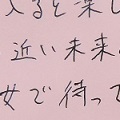 入ると楽し
近い未来
女で待って